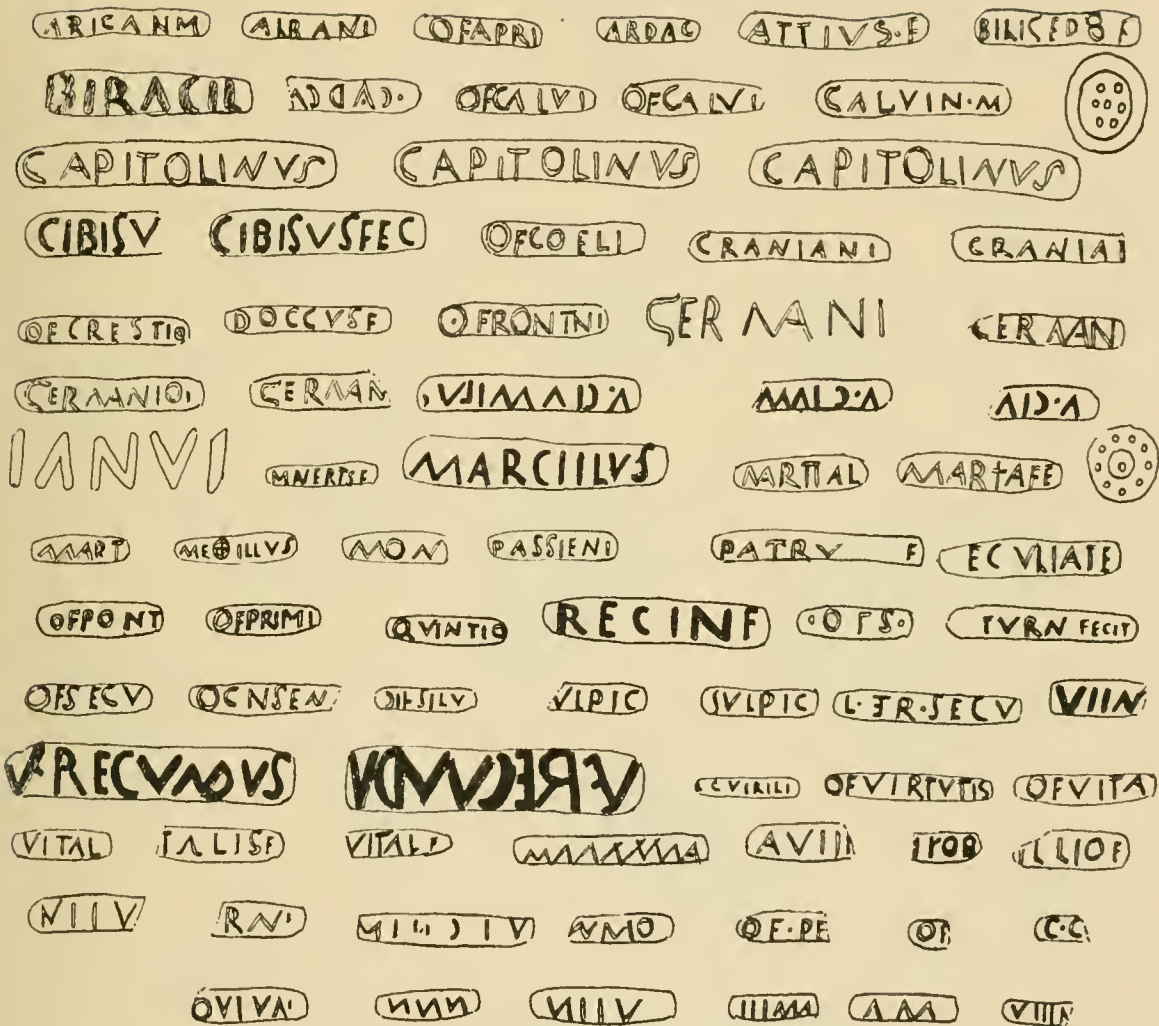 ARICANM AIRANI OFAPRI ARDAC ATTIVS·F BILICEDOF
BIRACIL OFCALVI OFCALVI CALVIN·M
CAPITOLINVS CAPITOLINVS CAPITOLINVS
CIBISV CIBISVSFEC OFCOELI CRANIANI CRANIAI
OFCRESTIO DOCCVSF OFRONTNI GERMANI GERMAN
GERMANIO GERMAN
IANVI MNERTSF MARCIILVS MARTIAL MARTAFE
MART MEĐILLVS MON PASSIENI PATRV F ECVLIATE
OFPONT OFPRIMI QVINTIO RECINF ·OPS· TVRN FECIT
OFSECV OCNSEN VLPIC SVLPIC L·TR·SECV VIIN
VERECVNDVS CVIRILI OFVIRTVTIS OFVITA
VITAL TALISF VITALI AVIII LLIOF
NIIV NMO OF·PE OF C·C
OVIVA NNN VIIV IIIMA AM VIIIN